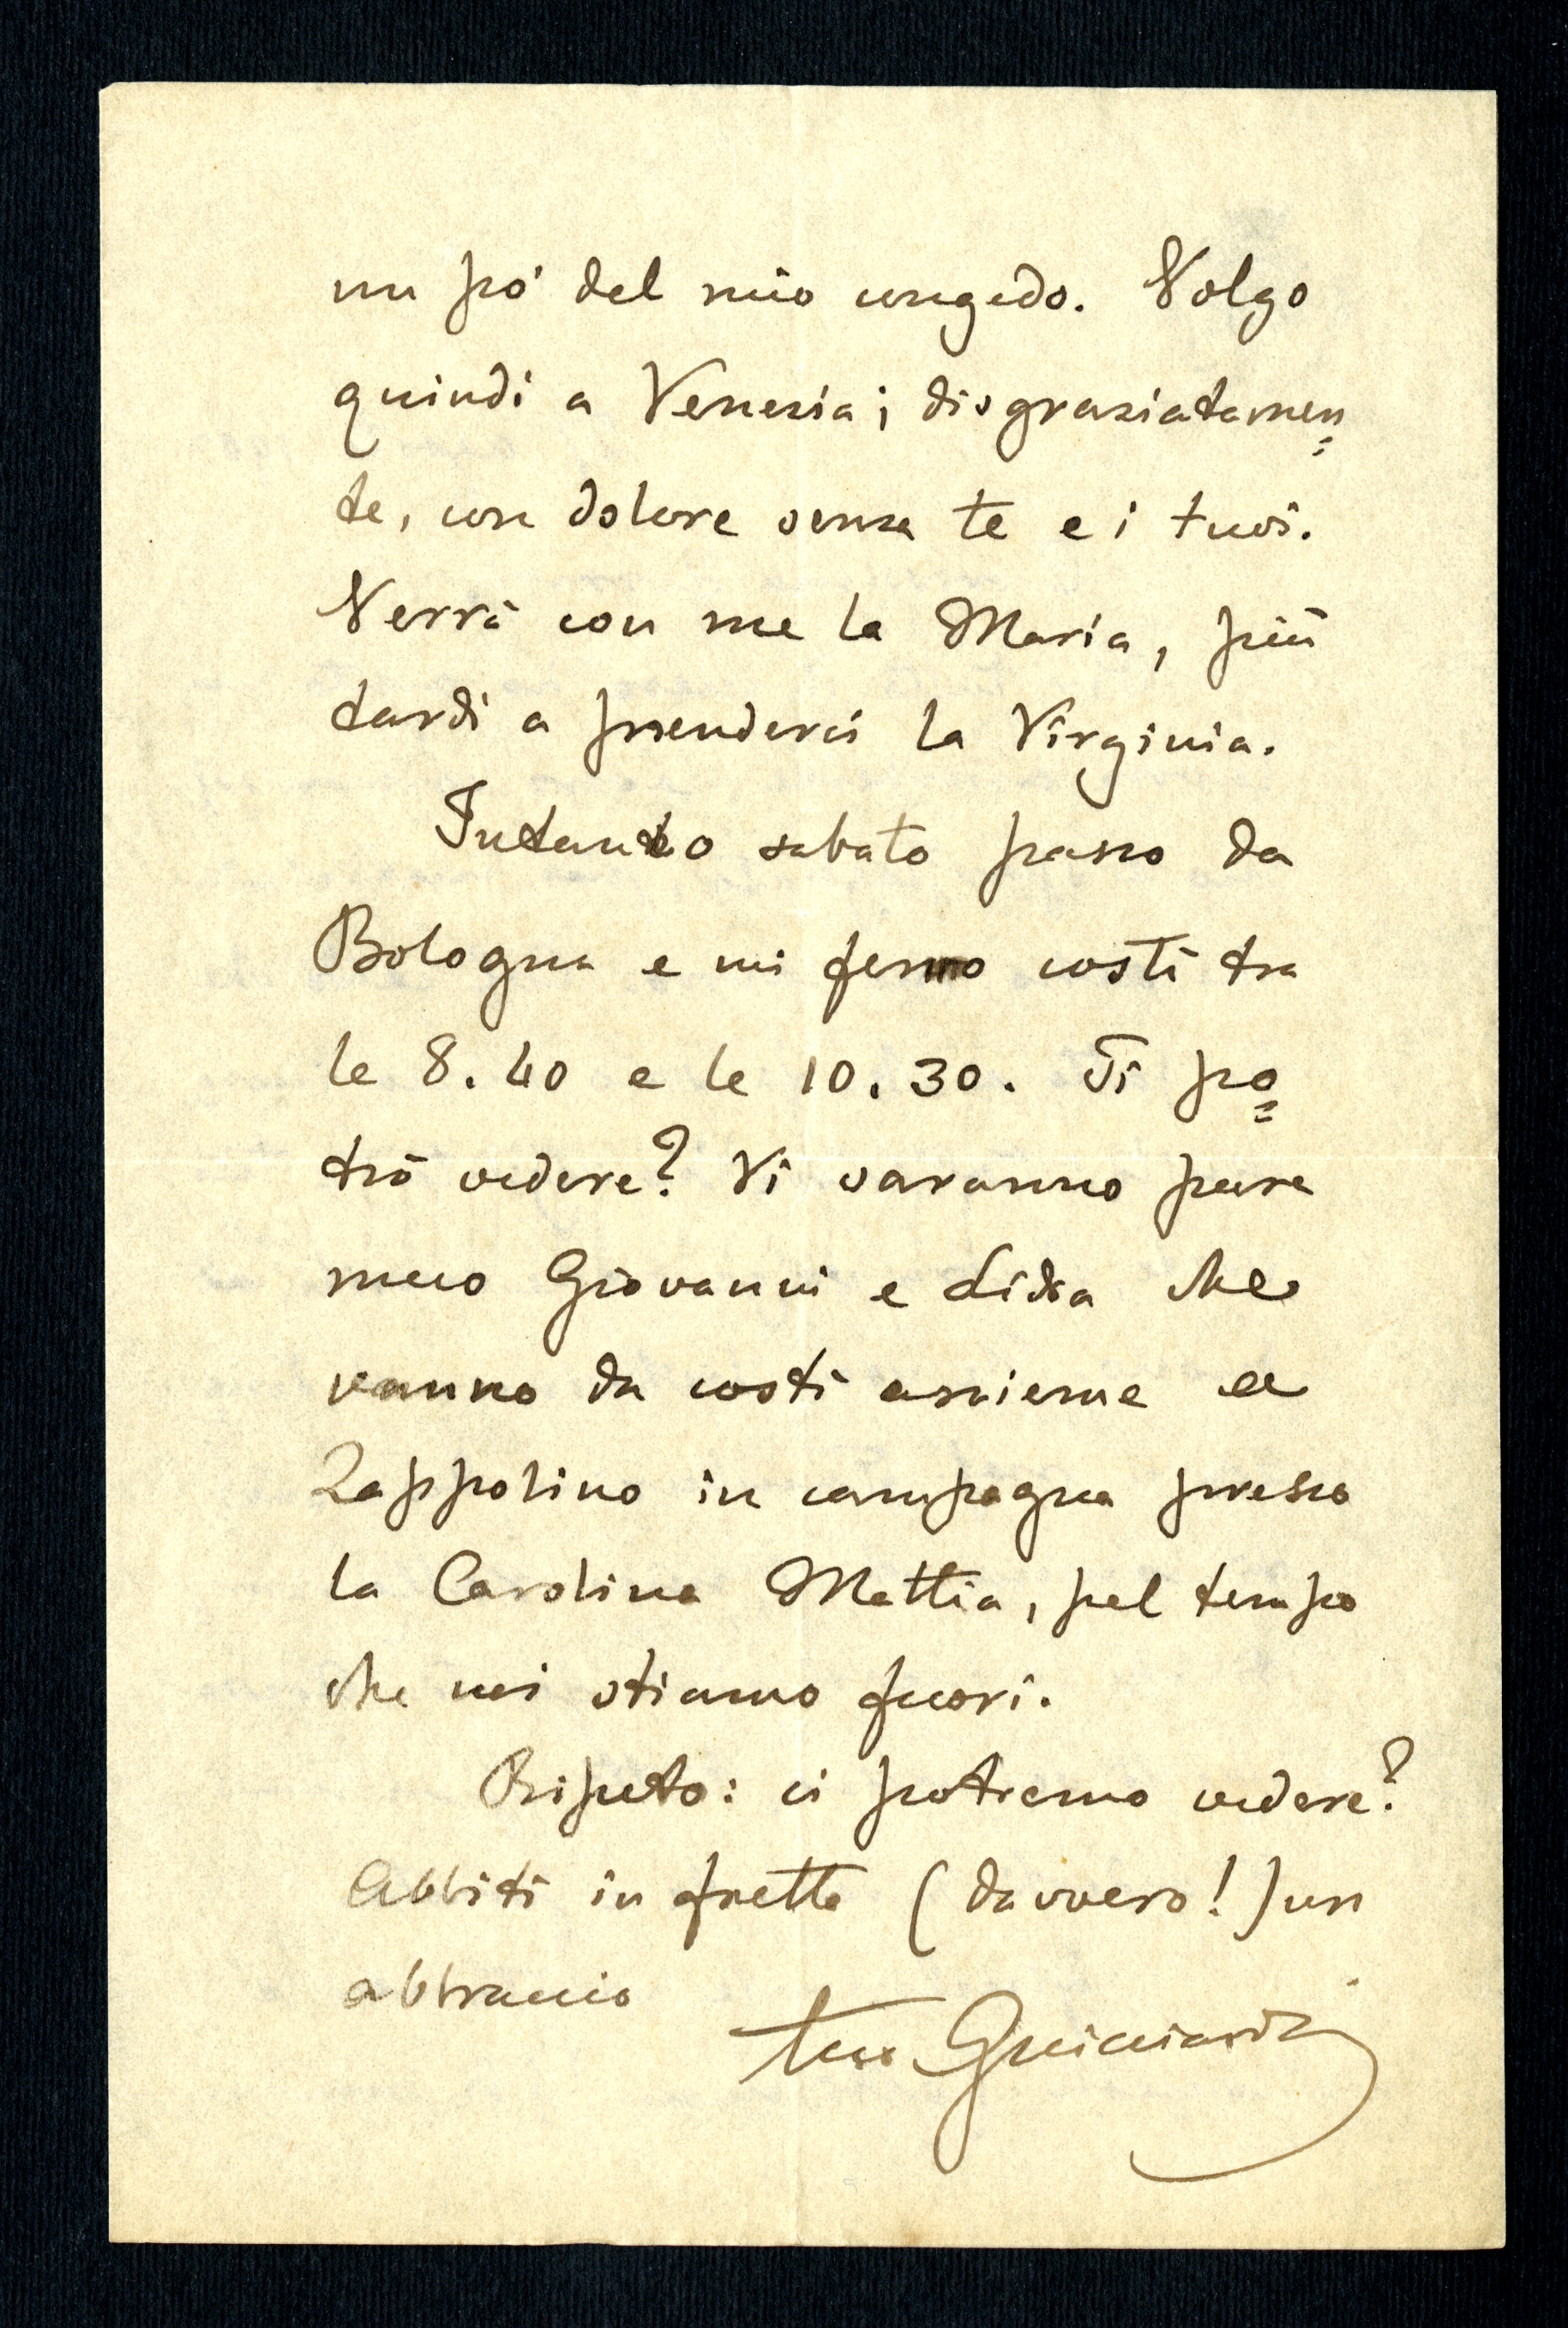 un pó del mio congedo. Volgo
quindi a Venezia; disgraziatamen=
te, con dolore senza te e i tuoi.
Verrà con me la Maria, più
tardi a prenderci la Virginia.
Intanto sabato passo da
Bologna e mi fermo costì tra
le 8.40 e le 10.30. Ti po=
trò vedere? Vi saranno pure
meco Giovanni e Lidia che
vanno da costì assieme a
Zappolino in campagna presso
la Carolina Mattia, pel tempo
che noi stiamo fuori.
Ripeto: ci potremo vedere?
Abbiti in fretta (davvero!) un
abbraccio
tuo Guicciardi